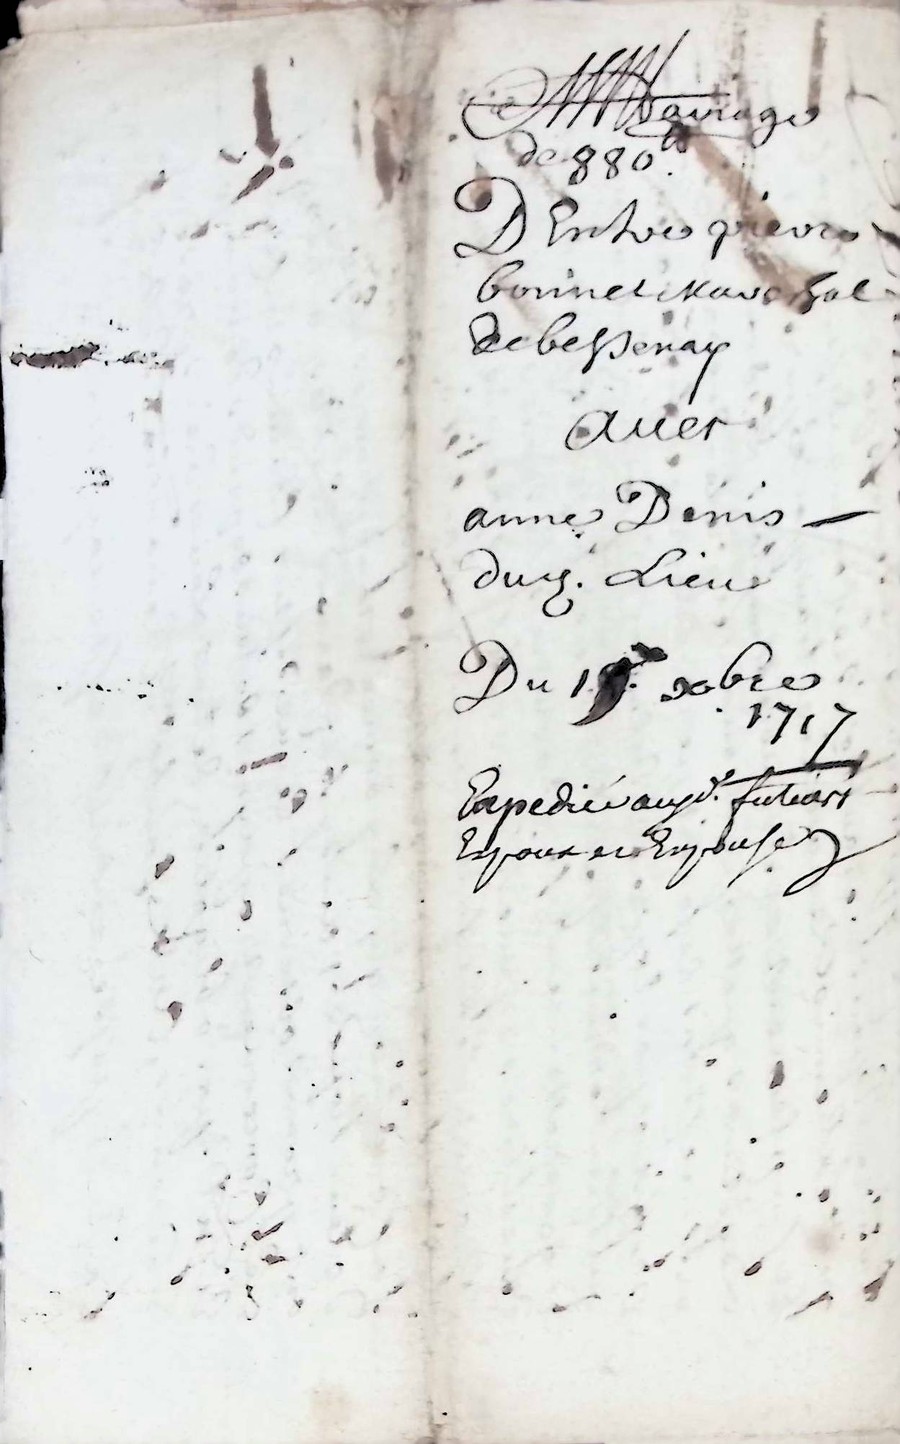 Mariage
de 880ᵗ.
D'Entre pierre
bonnet Mareschal
de bessenay
auec
anne Denis —
dud. Lieu
Du 1 xbre
1717
Expedié ausd. futurs
Espoux et Espouse